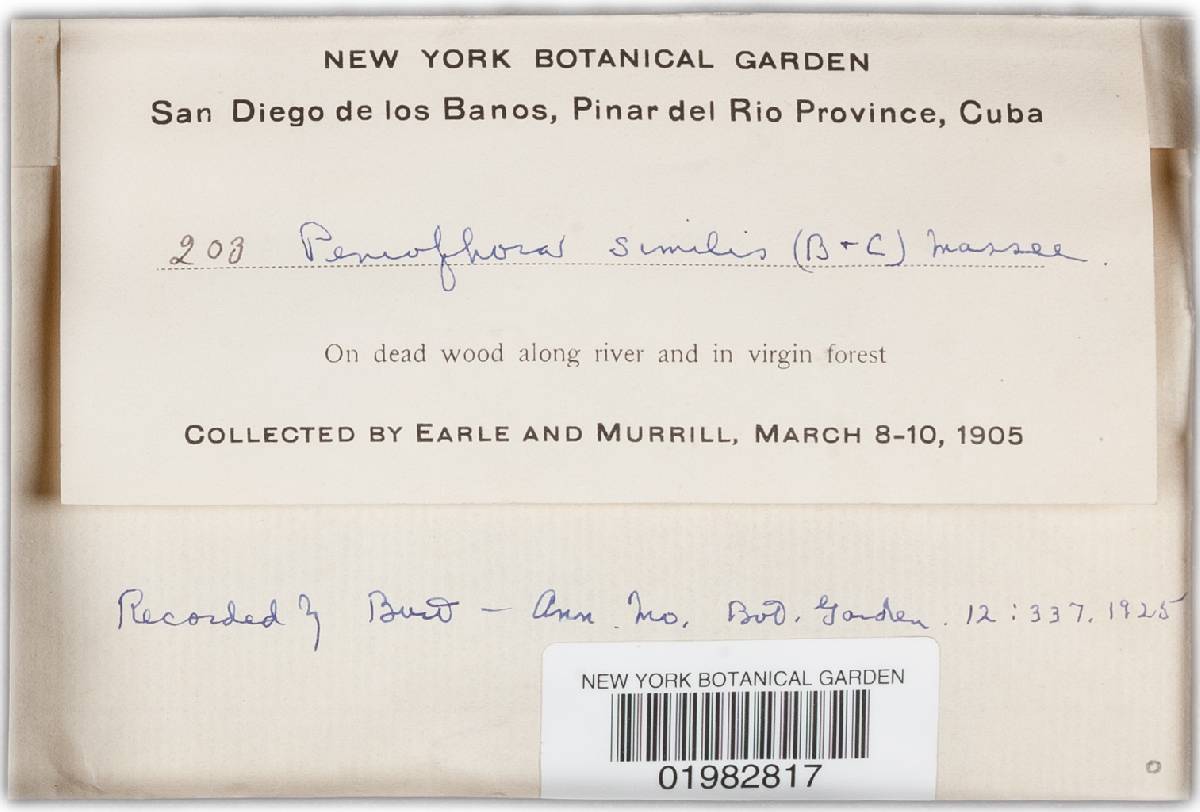 NEW YORK BOTANICAL GARDEN
San Diego de los Banos, Pinar del Rio Province, Cuba
203 Peniophora similis (B + C) Massee.
On dead wood along river and in virgin forest
COLLECTED BY EARLE AND MURRILL, MARCH 8-10, 1905
Recorded by Burt - Ann. Mo. Bot. Garden. 12:337. 1925
NEW YORK BOTANICAL GARDEN
01982817